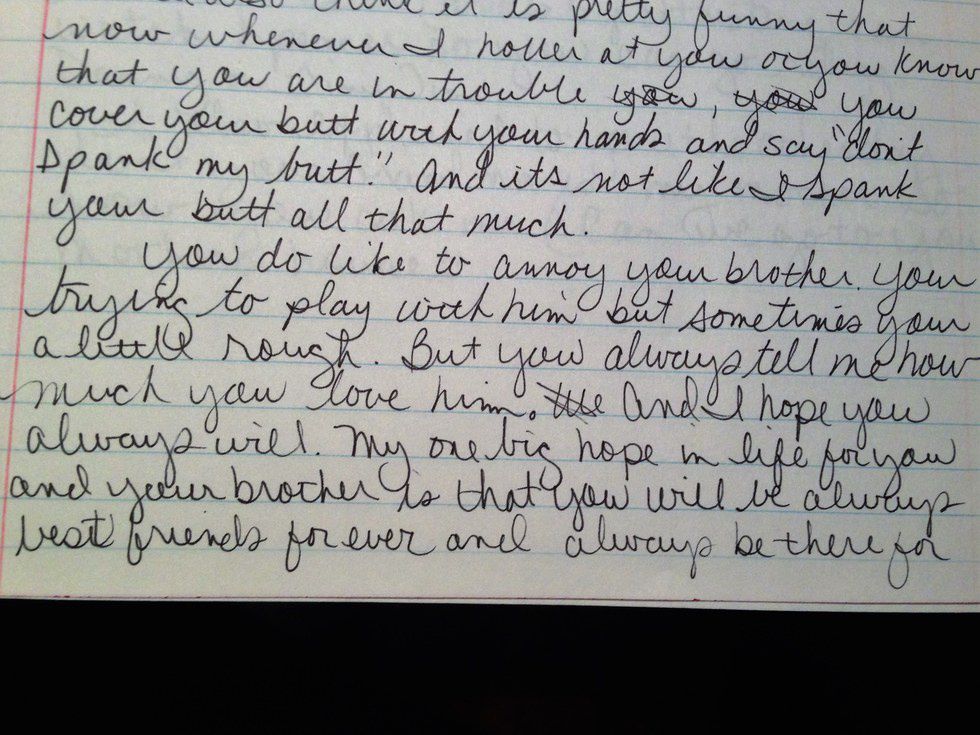 also think it is pretty funny that
now whenever I holler at you or you know
that you are in trouble you, you you
cover your butt with your hands and say "don't
spank my butt." And its not like I spank
your butt all that much.
You do like to annoy your brother. Your
trying to play with him but sometimes your
a little rough. But you always tell me how
much you love him. And I hope you
always will. My one big hope in life for you
and your brother is that you will be always
best friends forever and always be there for